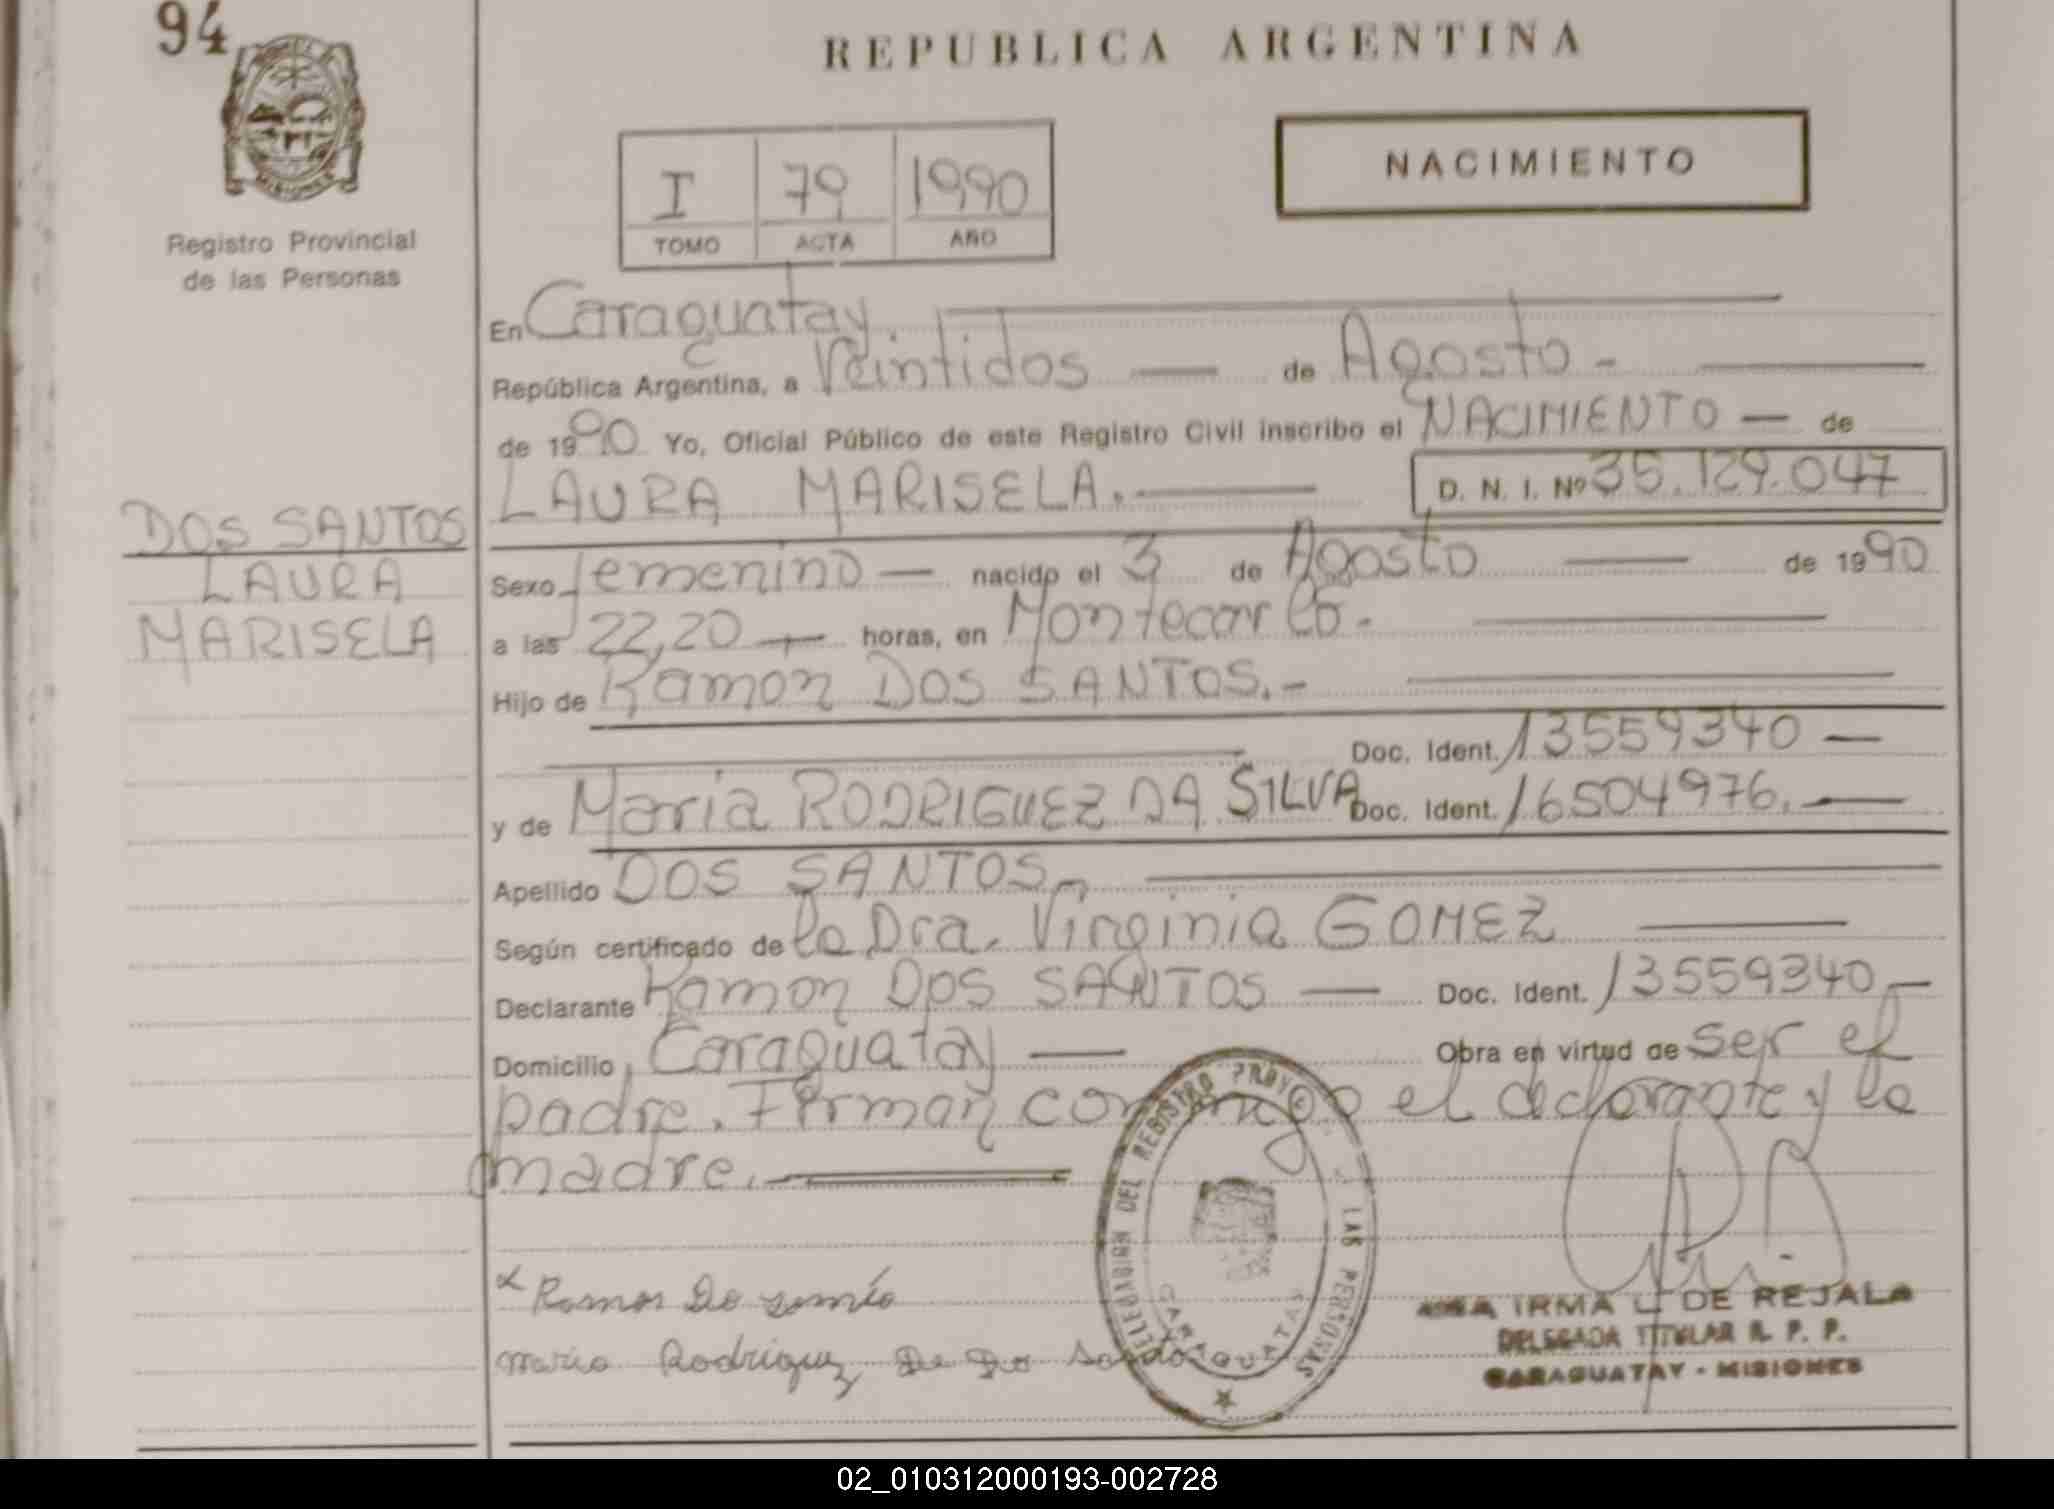 94
REPUBLICA ARGENTINA
NACIMIENTO
I 79 1990
TOMO ACTA AÑO
MISIONES
Registro Provincial
de las Personas
DOS SANTOS
LAURA
MARISELA
En Caraguatay.
República Argentina, a Veintidos — de Agosto -
de 1990 Yo, Oficial Público de este Registro Civil inscribo el NACIMIENTO — de
LAURA MARISELA. D. N. I. Nº 35.129.047
Sexo femenino — nacido el 3 de Agosto — de 1990
a las 22,20 — horas, en Montecarlo.
Hijo de Ramon DOS SANTOS.-
Doc. Ident. 13559340 —
y de Maria RODRIGUEZ DA SILVA Doc. Ident. 16504976. —
Apellido DOS SANTOS.-
Según certificado de la Dra. Virginia GOMEZ
Declarante Ramon DOS SANTOS — Doc. Ident. 13559340 —
Domicilio Caraguatay — Obra en virtud de ser el
padre. Firman conmigo el declarante y la
madre.
DELEGACION DEL REGISTRO PROV. LAS PERSONAS
CARAGUATAY
Ramon Do
Maria Rodriguez De Do
IRMA L DE REJALA
DELEGADA TITULAR R. P. P.
CARAGUATAY - MISIONES
02_010312000193-002728